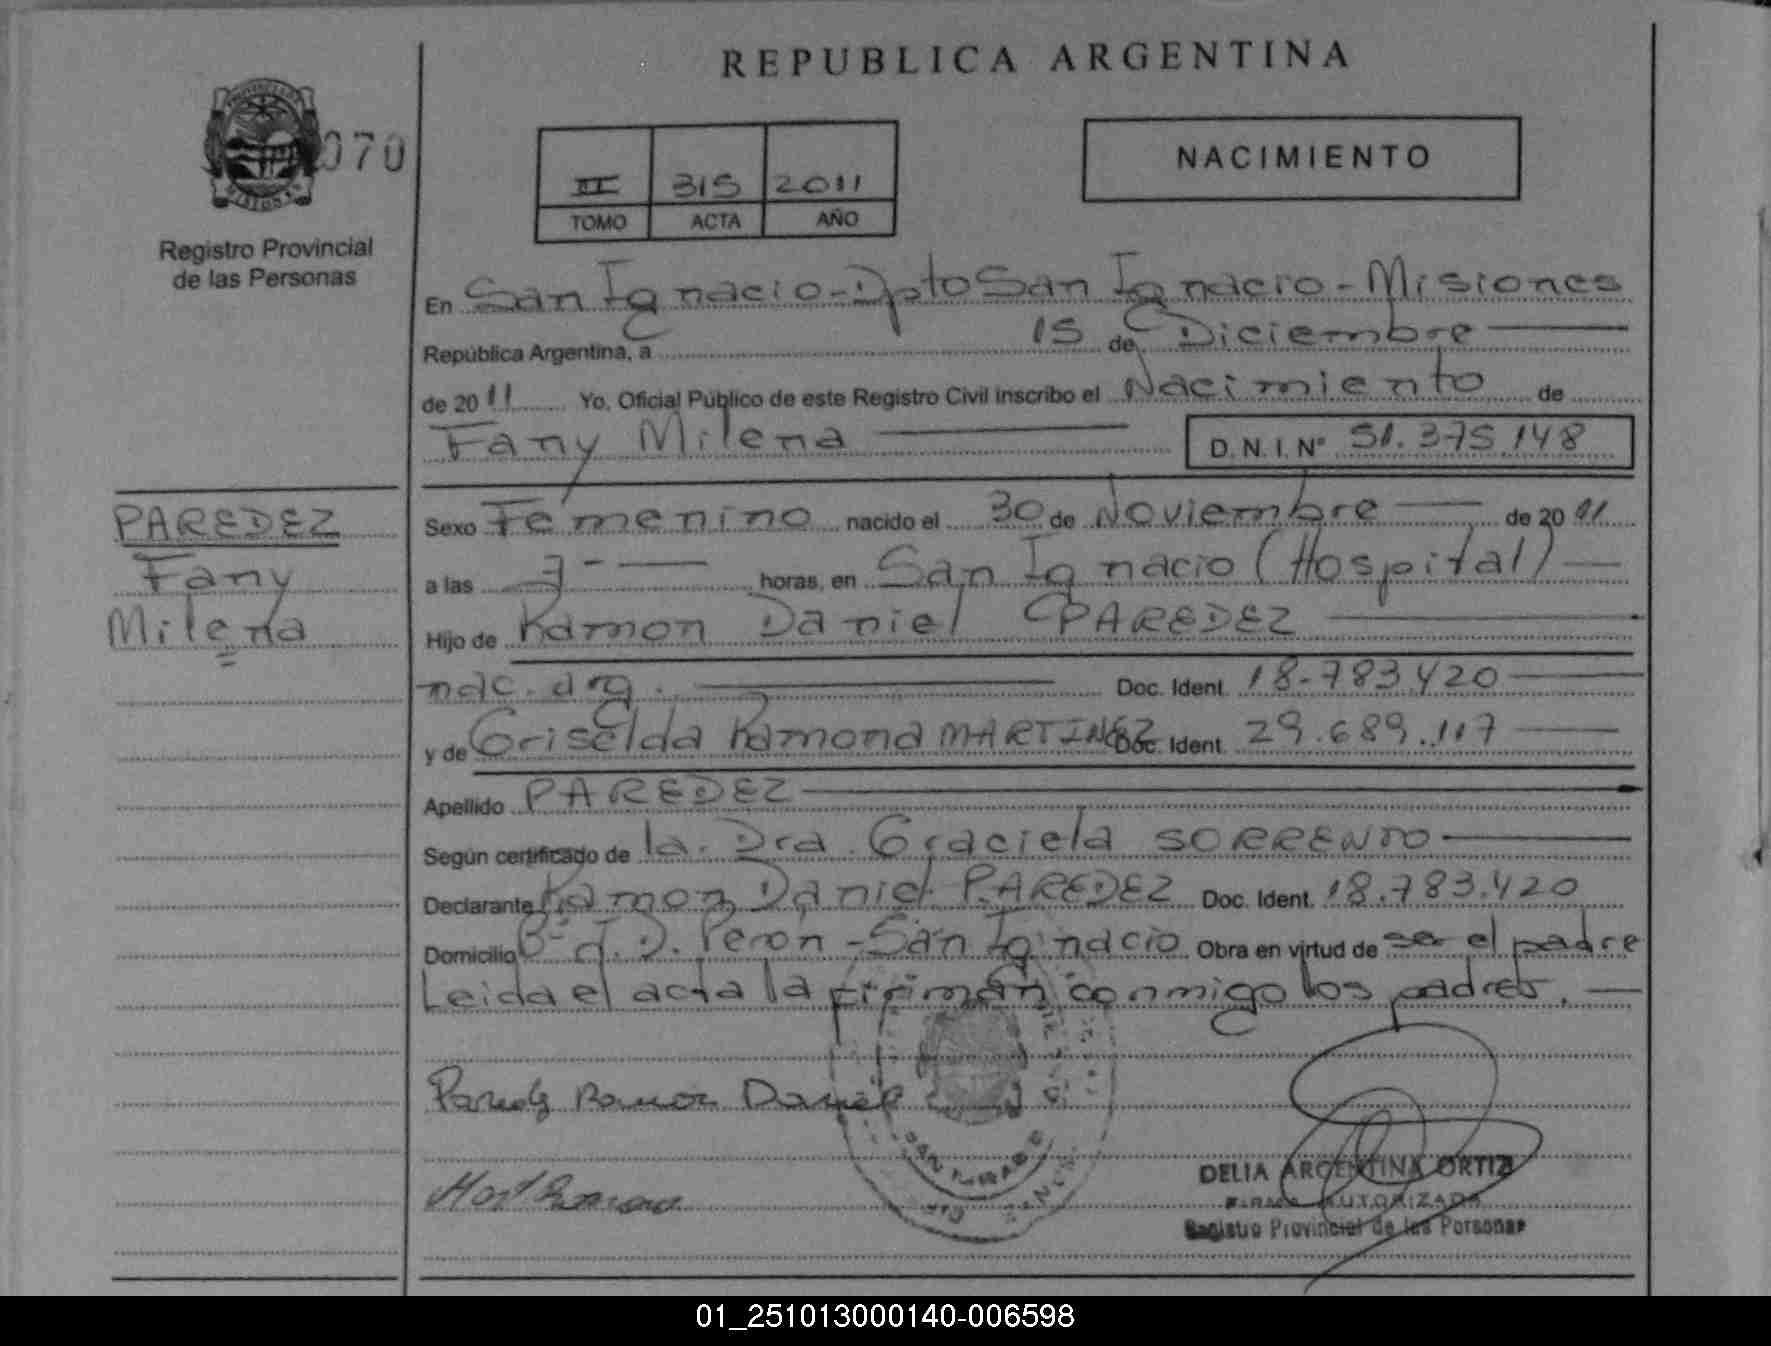 REPUBLICA ARGENTINA
070
II 315 2011
TOMO ACTA AÑO
NACIMIENTO
Registro Provincial
de las Personas
En San Ignacio - Dpto San Ignacio - Misiones
República Argentina, a 15 de Diciembre
de 2011 Yo, Oficial Público de este Registro Civil inscribo el Nacimiento de
Fany Milena D.N.I. Nº 51.375.148
PAREDEZ
Fany
Milena
Sexo Femenino nacido el 30 de Noviembre de 2011
a las 7 - horas, en San Ignacio (Hospital)
Hijo de Ramon Daniel PAREDEZ
nac. arg. Doc. Ident. 18.783.420
y de Griselda Ramona MARTINEZ Doc. Ident. 29.689.117
Apellido PAREDEZ
Según certificado de la Dra Graciela SORRENTO
Declarante Ramon Daniel PAREDEZ Doc. Ident. 18.783.420
Domicilio Bº J. D. Peron - San Ignacio Obra en virtud de ser el padre
Leida el acta la firman conmigo los padres.
Paredez Ramon Daniel
DELIA ARGENTINA ORTIZ
FIRMA AUTORIZADA
Registro Provincial de las Personas
01_251013000140-006598